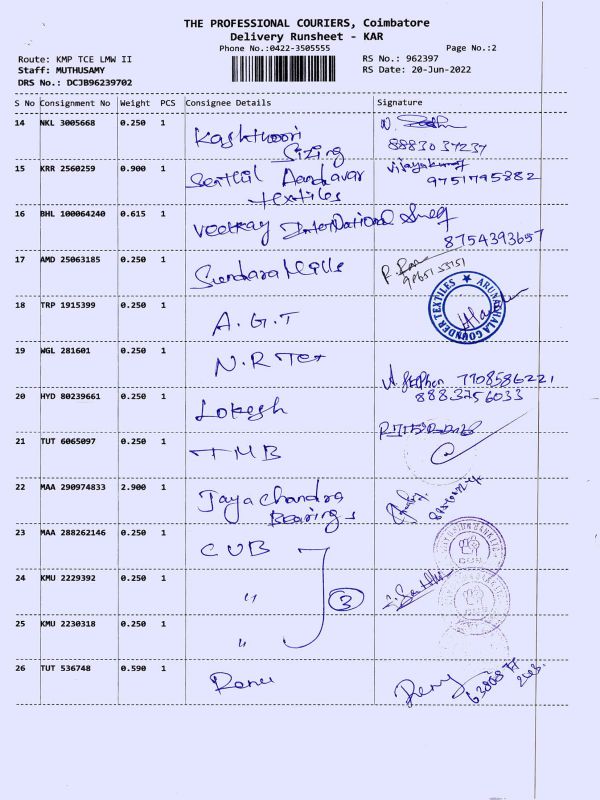 THE PROFESSIONAL COURIERS, Coimbatore
Delivery Runsheet - KAR
Phone No.:0422-3505555
Page No.:2
Route: KMP TCE LMW II
RS No.: 962397
Staff: MUTHUSAMY
RS Date: 20-Jun-2022
DRS No.: DCJB96239702
S No Consignment No Weight PCS Consignee Details Signature
14 NKL 3005668 0.250 1
Sizing
8883037237
15 KRR 2560259 0.900 1 Senthil Aandavar
Textiles
Vijayakumar
9751795882
16 BHL 100064240 0.615 1 Veekay International
8754393657
17 AMD 25063185 0.250 1 Sundara Mills
18 TRP 1915399 0.250 1 A.G.T
ARUNACHALA GOUNDER TEXTILES
19 WGL 281601 0.250 1 N.R Tex
A. Stephen 7708586221
20 HYD 80239661 0.250 1 Lokesh
8883756033
21 TUT 6065097 0.250 1 TMB
22 MAA 290974833 2.900 1 Jayachandra
Bearings
23 MAA 288262146 0.250 1 CUB
24 KMU 2229392 0.250 1 "
3
25 KMU 2230318 0.250 1 "
26 TUT 536748 0.590 1 Renu